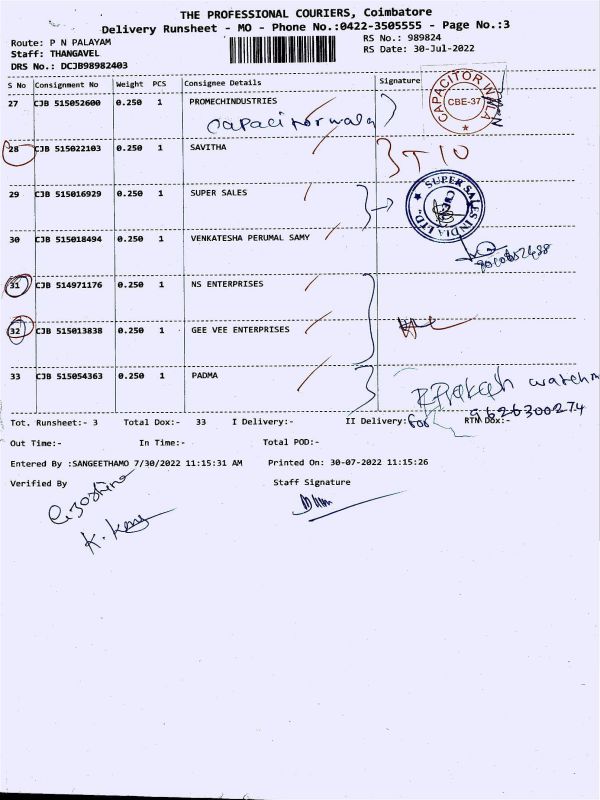 THE PROFESSIONAL COURIERS, Coimbatore
Delivery Runsheet - MO - Phone No.:0422-3505555 - Page No.:3
Route: P N PALAYAM
RS No.: 989824
Staff: THANGAVEL
RS Date: 30-Jul-2022
DRS No.: DCJB98982403
S No Consignment No Weight PCS Consignee Details Signature
27 CJB 515052600 0.250 1 PROMECHINDUSTRIES
Capacitorwala
CAPACITOR WALA
CBE-37
28 CJB 515022103 0.250 1 SAVITHA
29 CJB 515016929 0.250 1 SUPER SALES
SUPER SALES INDIA LTD.
30 CJB 515018494 0.250 1 VENKATESHA PERUMAL SAMY
31 CJB 514971176 0.250 1 NS ENTERPRISES
32 CJB 515013838 0.250 1 GEE VEE ENTERPRISES
33 CJB 515054363 0.250 1 PADMA
Prakash watchm
9626300274
Tot. Runsheet:- 3 Total Dox:- 33 I Delivery:- II Delivery:- RTN Dox:-
for
Out Time:- In Time:- Total POD:-
Entered By :SANGEETHAMO 7/30/2022 11:15:31 AM Printed On: 30-07-2022 11:15:26
Verified By Staff Signature